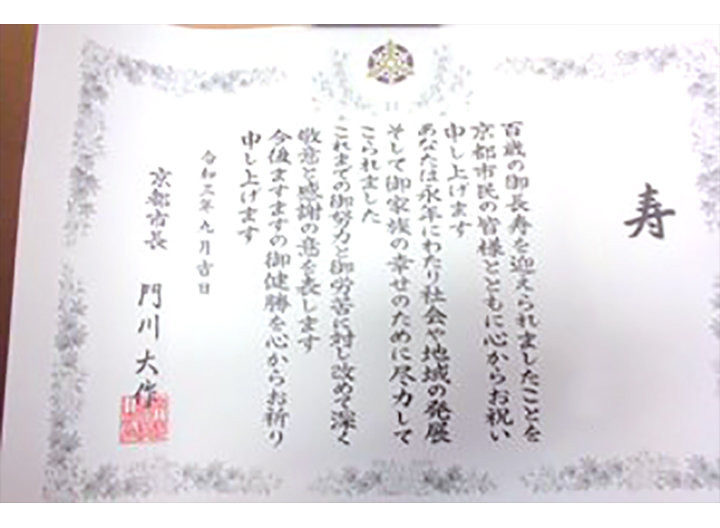 寿
百歳の御長寿を迎えられましたことを
京都市民の皆様とともに心からお祝い
申し上げます
あなたは永年にわたり社会や地域の発展
そして御家族の幸せのために尽力して
こられました
これまでの御努力と御労苦に対し改めて深く
敬意と感謝の意を表します
今後ますますの御健勝を心からお祈り
申し上げます
令和三年九月吉日
京都市長 門川大作